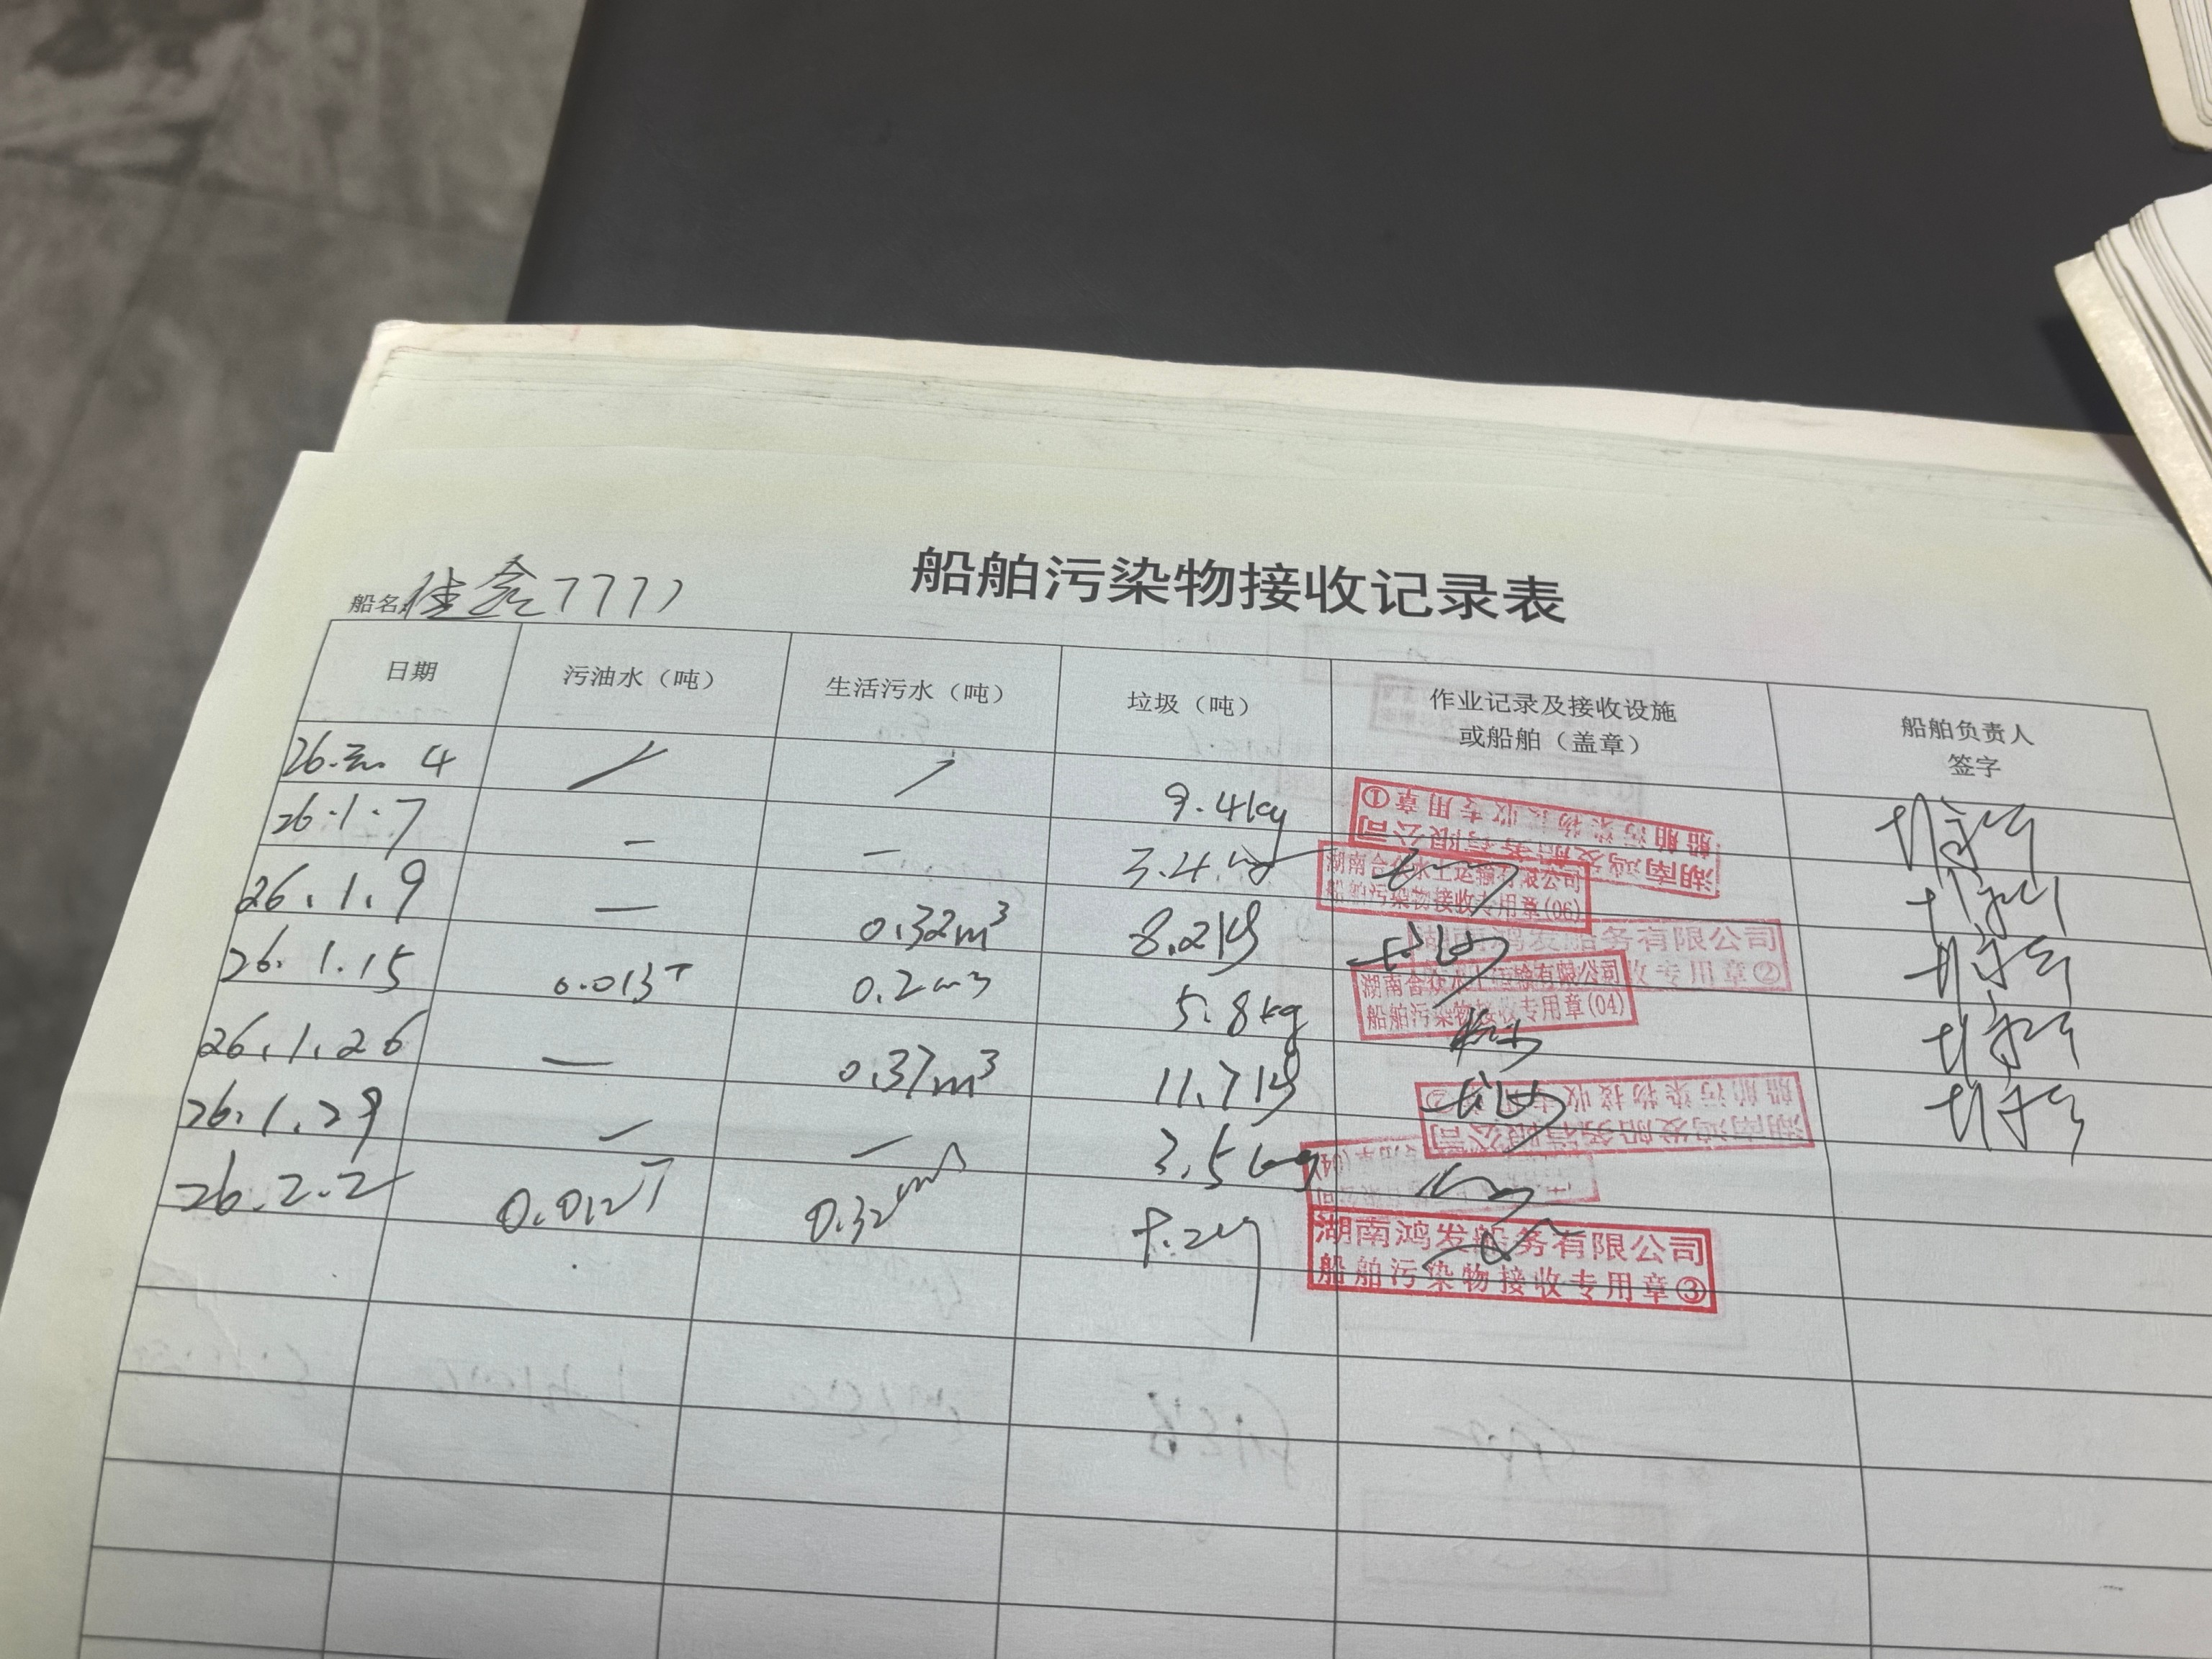 船舶污染物接收记录表
船名:佳鑫7777
日期 污油水（吨） 生活污水（吨） 垃圾（吨） 作业记录及接收设施或船舶（盖章） 船舶负责人签字
26. 4 / / 9.4kg
湖南鸿发船务有限公司
船舶污染物接收专用章①
26.1.7 — — 3.4kg
湖南合众水上运输有限公司
船舶污染物接收专用章(06)
26.1.9 — 0.32m³ 8.2kg
湖南鸿发船务有限公司
收专用章②
26.1.15 0.013T 0.2m³ 5.8kg
湖南合众水上运输有限公司
船舶污染物接收专用章(04)
26.1.26 — 0.37m³ 11.7kg
湖南鸿发船务有限公司
船舶污染物接收专用章②
26.1.29 — — 3.5kg
26.2.2 0.012T 0.32m³ 8.2kg
湖南鸿发船务有限公司
船舶污染物接收专用章③